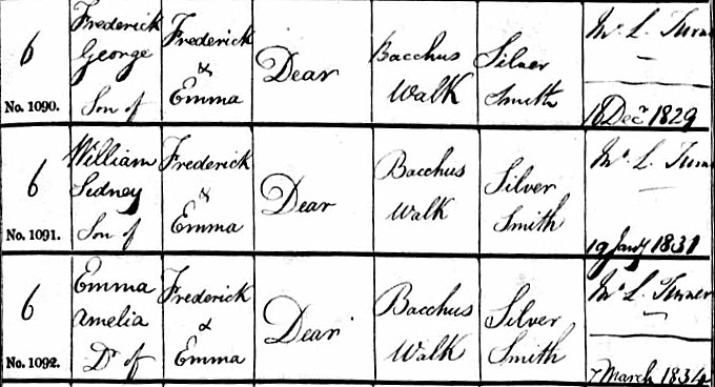 6
No. 1090.
Frederick
George
Son of
Frederick
&
Emma
Dear
Bacchus
Walk
Silver
Smith
Mr. L. Turn
18 Decr 1829
6
No. 1091.
William
Sidney
Son of
Frederick
&
Emma
Dear
Bacchus
Walk
Silver
Smith
Mr. L. Turn
19 Jany 1831
6
No. 1092.
Emma
Amelia
Dr of
Frederick
&
Emma
Dear
Bacchus
Walk
Silver
Smith
Mr. L. Turner
7 March 1834